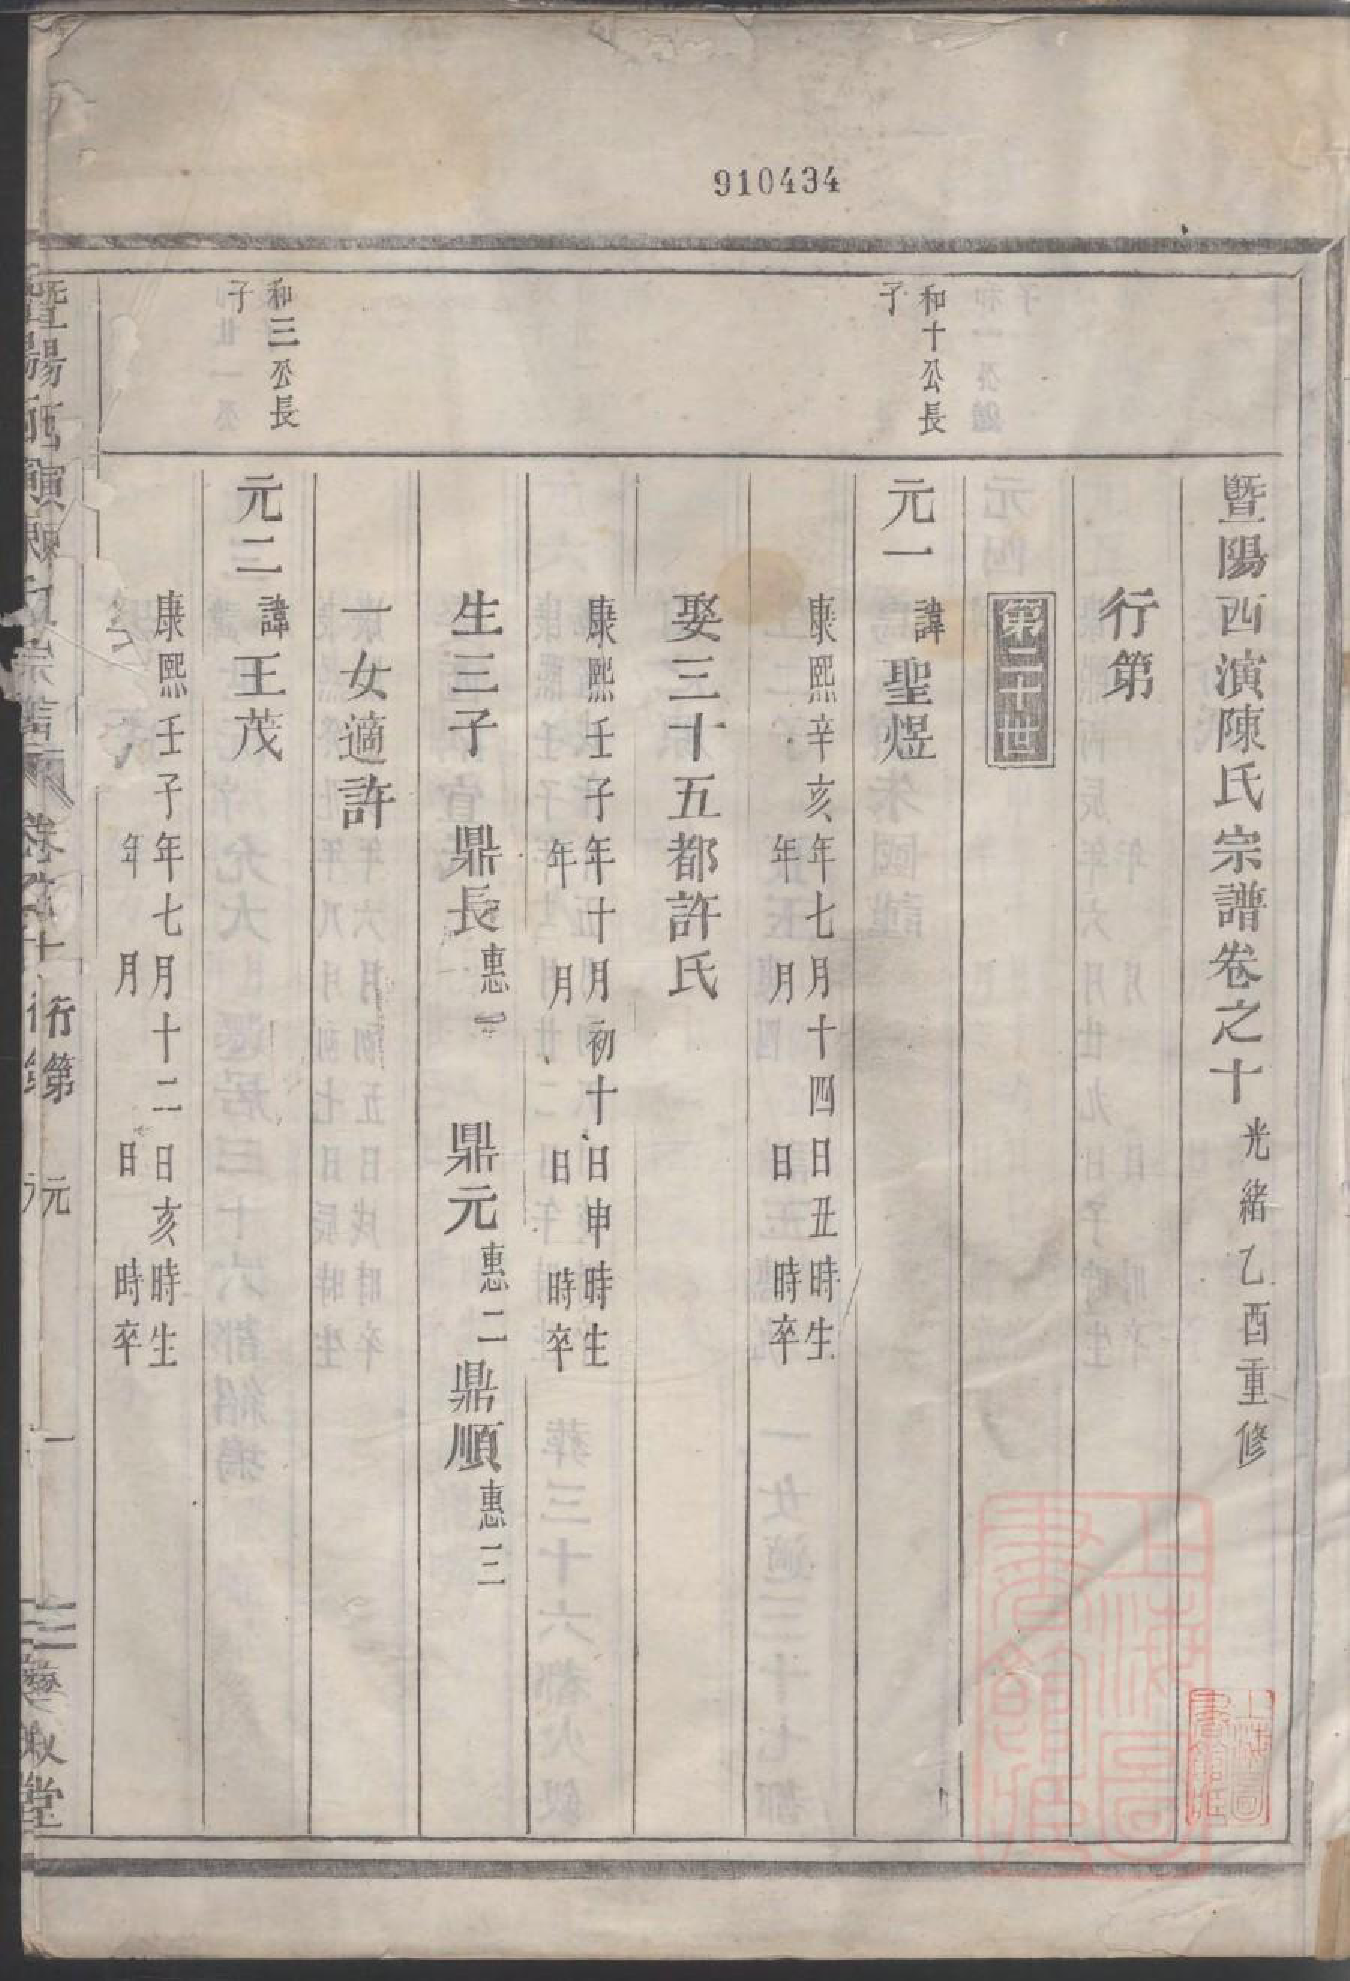 910434
暨陽西演陳氏宗譜卷之十 光緒乙酉重修
行第
第二十世
和十公長
子
元一 諱聖煜
康熙辛亥年七月十四日丑時生
年 月 日 時卒
娶三十五都許氏
康熙壬子年十月初十日申時生
年 月 日 時卒
生三子 鼎長惠一 鼎元惠二 鼎順惠三
一女適許
和三公長
子
元二 諱王茂
康熙壬子年七月十二日亥時生
年 月 日 時卒
行第 元 一
堂
上海圖書館藏
上海圖書館藏